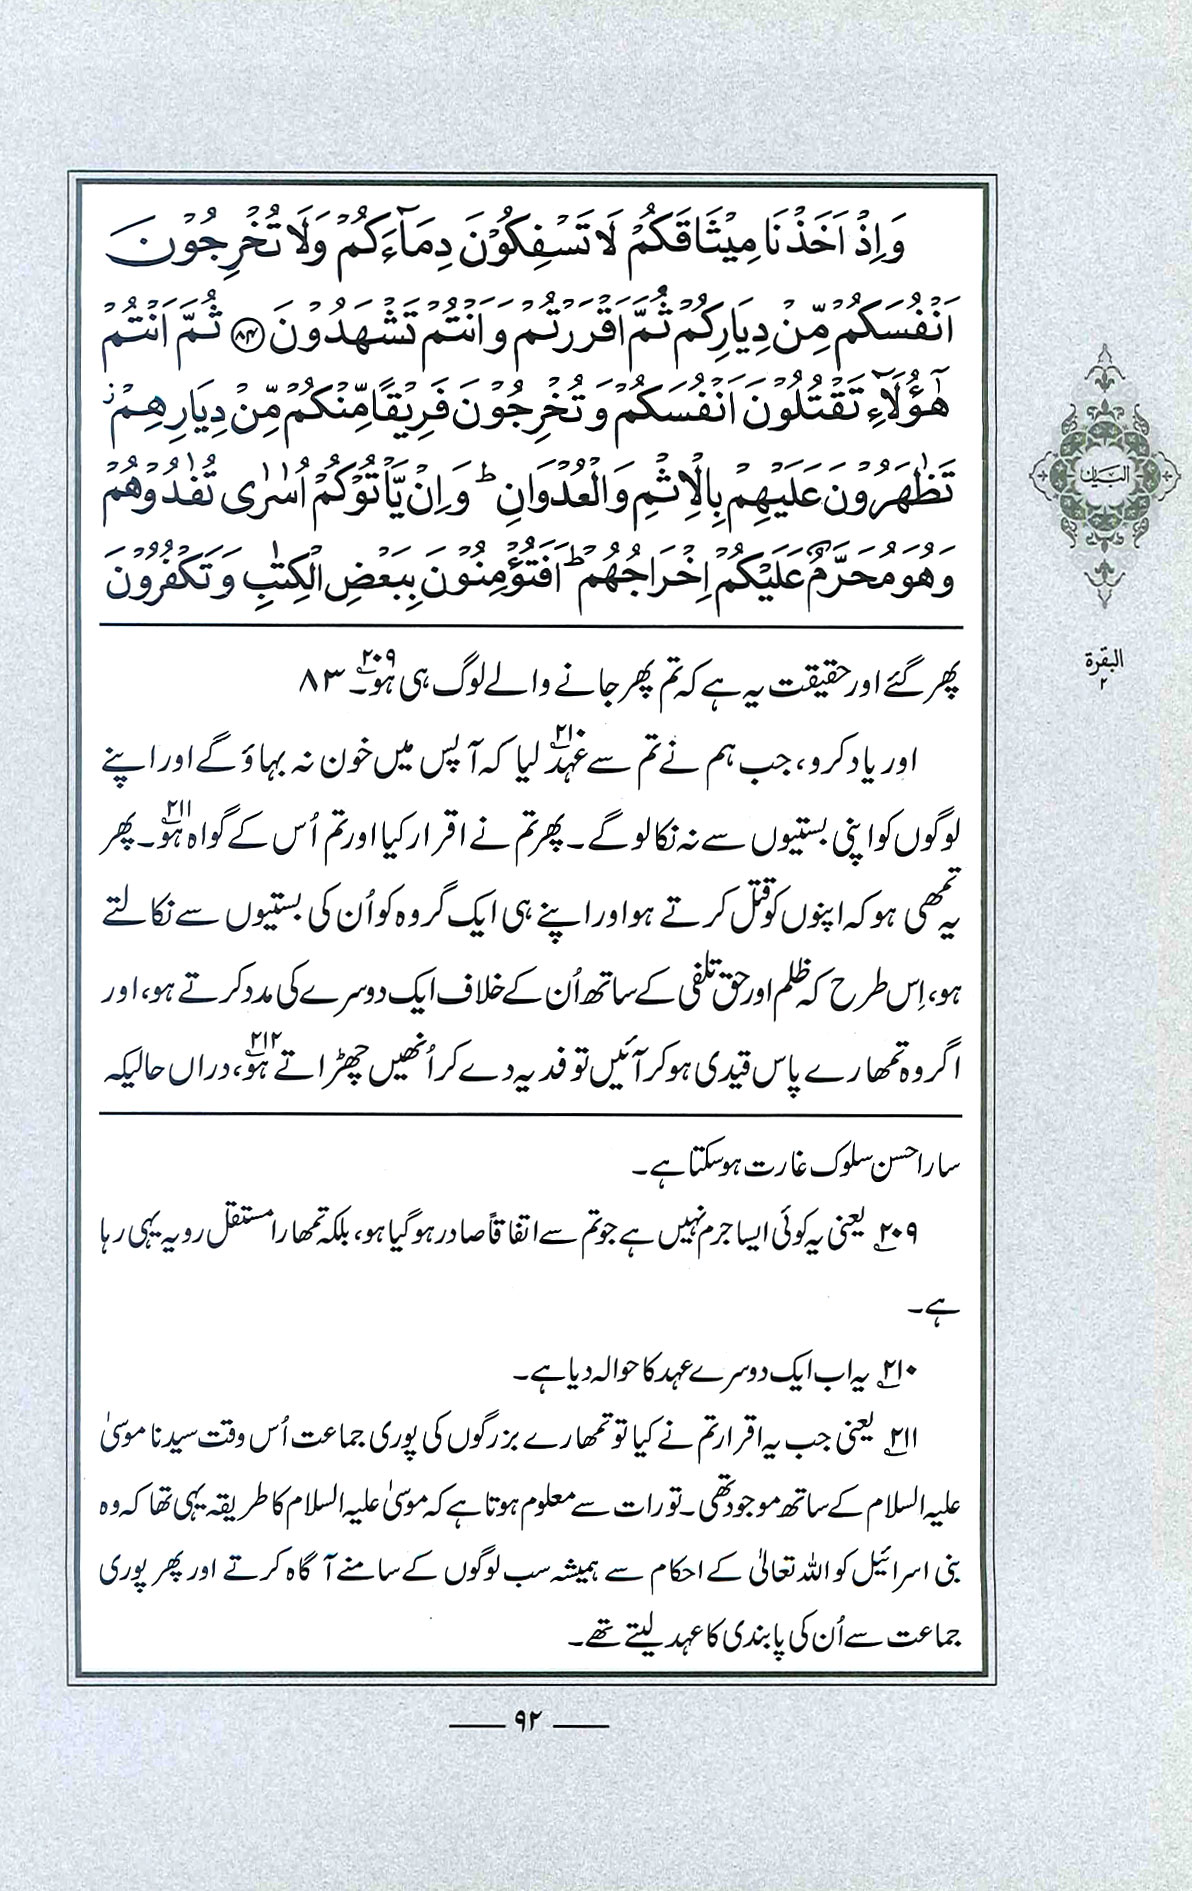 وَاِذْ اَخَذْنَا مِيْثَاقَكُمْ لَا تَسْفِكُوْنَ دِمَآءَكُمْ وَلَا تُخْرِجُوْنَ
اَنْفُسَكُمْ مِّنْ دِيَارِكُمْ ثُمَّ اَقْرَرْتُمْ وَاَنْتُمْ تَشْهَدُوْنَ ﴿۸۴﴾ ثُمَّ اَنْتُمْ
هٰٓؤُلَآءِ تَقْتُلُوْنَ اَنْفُسَكُمْ وَتُخْرِجُوْنَ فَرِيْقًا مِّنْكُمْ مِّنْ دِيَارِهِمْ ز
تَظٰهَرُوْنَ عَلَيْهِمْ بِالْاِثْمِ وَالْعُدْوَانِ ؕ وَاِنْ يَّاْتُوْكُمْ اُسٰرٰى تُفٰدُوْهُمْ
وَهُوَ مُحَرَّمٌ عَلَيْكُمْ اِخْرَاجُهُمْ ؕ اَفَتُؤْمِنُوْنَ بِبَعْضِ الْكِتٰبِ وَتَكْفُرُوْنَ
البیان
البقرۃ
۲
پھر گئے اور حقیقت یہ ہے کہ تم پھر جانے والے لوگ ہی ہو۔۲۰۹ ۸۳
اور یاد کرو، جب ہم نے تم سے عہد۲۱۰ لیا کہ آپس میں خون نہ بہاؤ گے اور اپنے
لوگوں کو اپنی بستیوں سے نہ نکالو گے۔ پھر تم نے اقرار کیا اور تم اُس کے گواہ ہو۲۱۱۔ پھر
یہ تمھی ہو کہ اپنوں کو قتل کرتے ہو اور اپنے ہی ایک گروہ کو اُن کی بستیوں سے نکالتے
ہو، اِس طرح کہ ظلم اور حق تلفی کے ساتھ اُن کے خلاف ایک دوسرے کی مدد کرتے ہو، اور
اگر وہ تمھارے پاس قیدی ہو کر آئیں تو فدیہ دے کر اُنھیں چھڑاتے ہو۲۱۲، دراں حالیکہ
سارا حسن سلوک غارت ہو سکتا ہے۔
۲۰۹؎ یعنی یہ کوئی ایسا جرم نہیں ہے جو تم سے اتفاقاً صادر ہو گیا ہو، بلکہ تمھارا مستقل رویہ یہی رہا
ہے۔
۲۱۰؎ یہ اب ایک دوسرے عہد کا حوالہ دیا ہے۔
۲۱۱؎ یعنی جب یہ اقرار تم نے کیا تو تمھارے بزرگوں کی پوری جماعت اُس وقت سیدنا موسیٰ
علیہ السلام کے ساتھ موجود تھی۔ تورات سے معلوم ہوتا ہے کہ موسیٰ علیہ السلام کا طریقہ یہی تھا کہ وہ
بنی اسرائیل کو اللہ تعالیٰ کے احکام سے ہمیشہ سب لوگوں کے سامنے آگاہ کرتے اور پھر پوری
جماعت سے اُن کی پابندی کا عہد لیتے تھے۔
۹۲